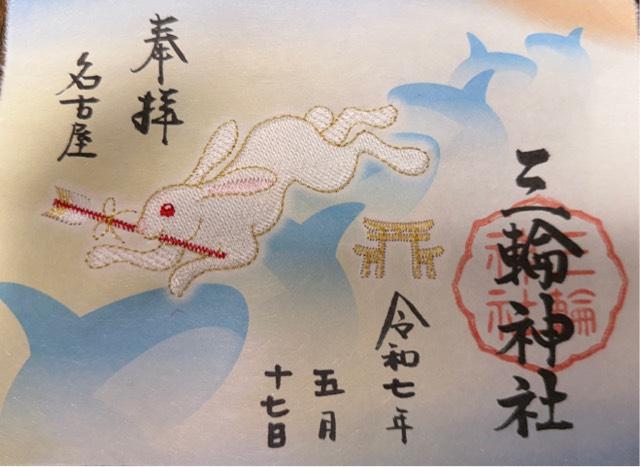 三輪神社
三輪
神社
令和七年
五月
十七日
奉拝
名古屋